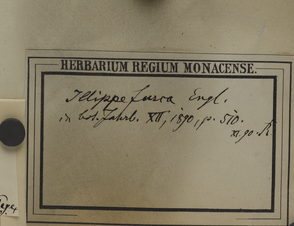 HERBARIUM REGIUM MONACENSE.
Illippe fusca Engl.
in bot. Jahrb. XII, 1890, p. 510.
XI. 90. R.